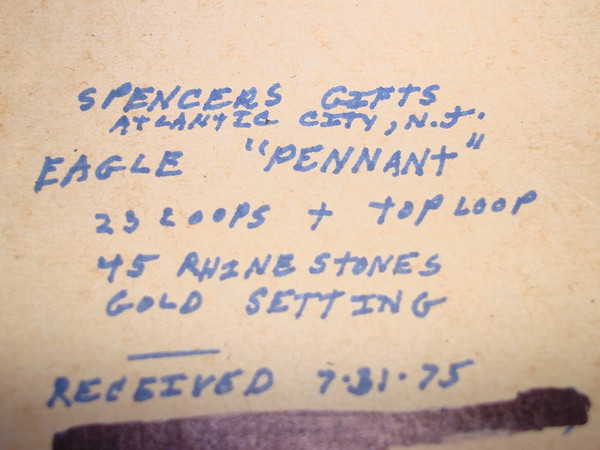 SPENCERS GIFTS
ATLANTIC CITY, N.J.
EAGLE "PENNANT"
23 LOOPS + TOP LOOP
45 RHINESTONES
GOLD SETTING
RECEIVED 7-31-75